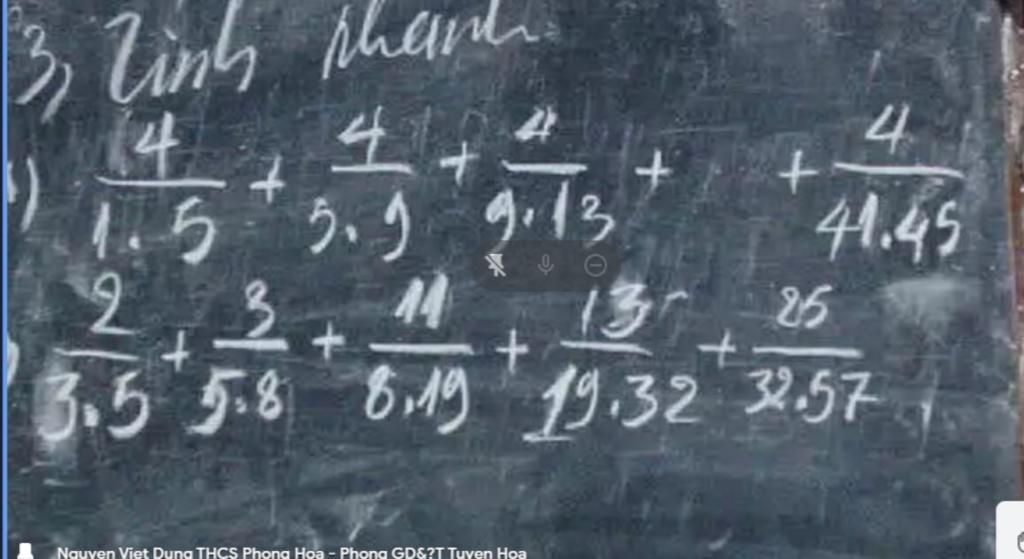 3, Tính nhanh
) 4/1.5 + 4/5.9 + 4/9.13 + + 4/41.45
) 2/3.5 + 3/5.8 + 11/8.19 + 13/19.32 + 25/32.57
Nguyen Viet Dung THCS Phong Hoa - Phong GD&?T Tuyen Hoa